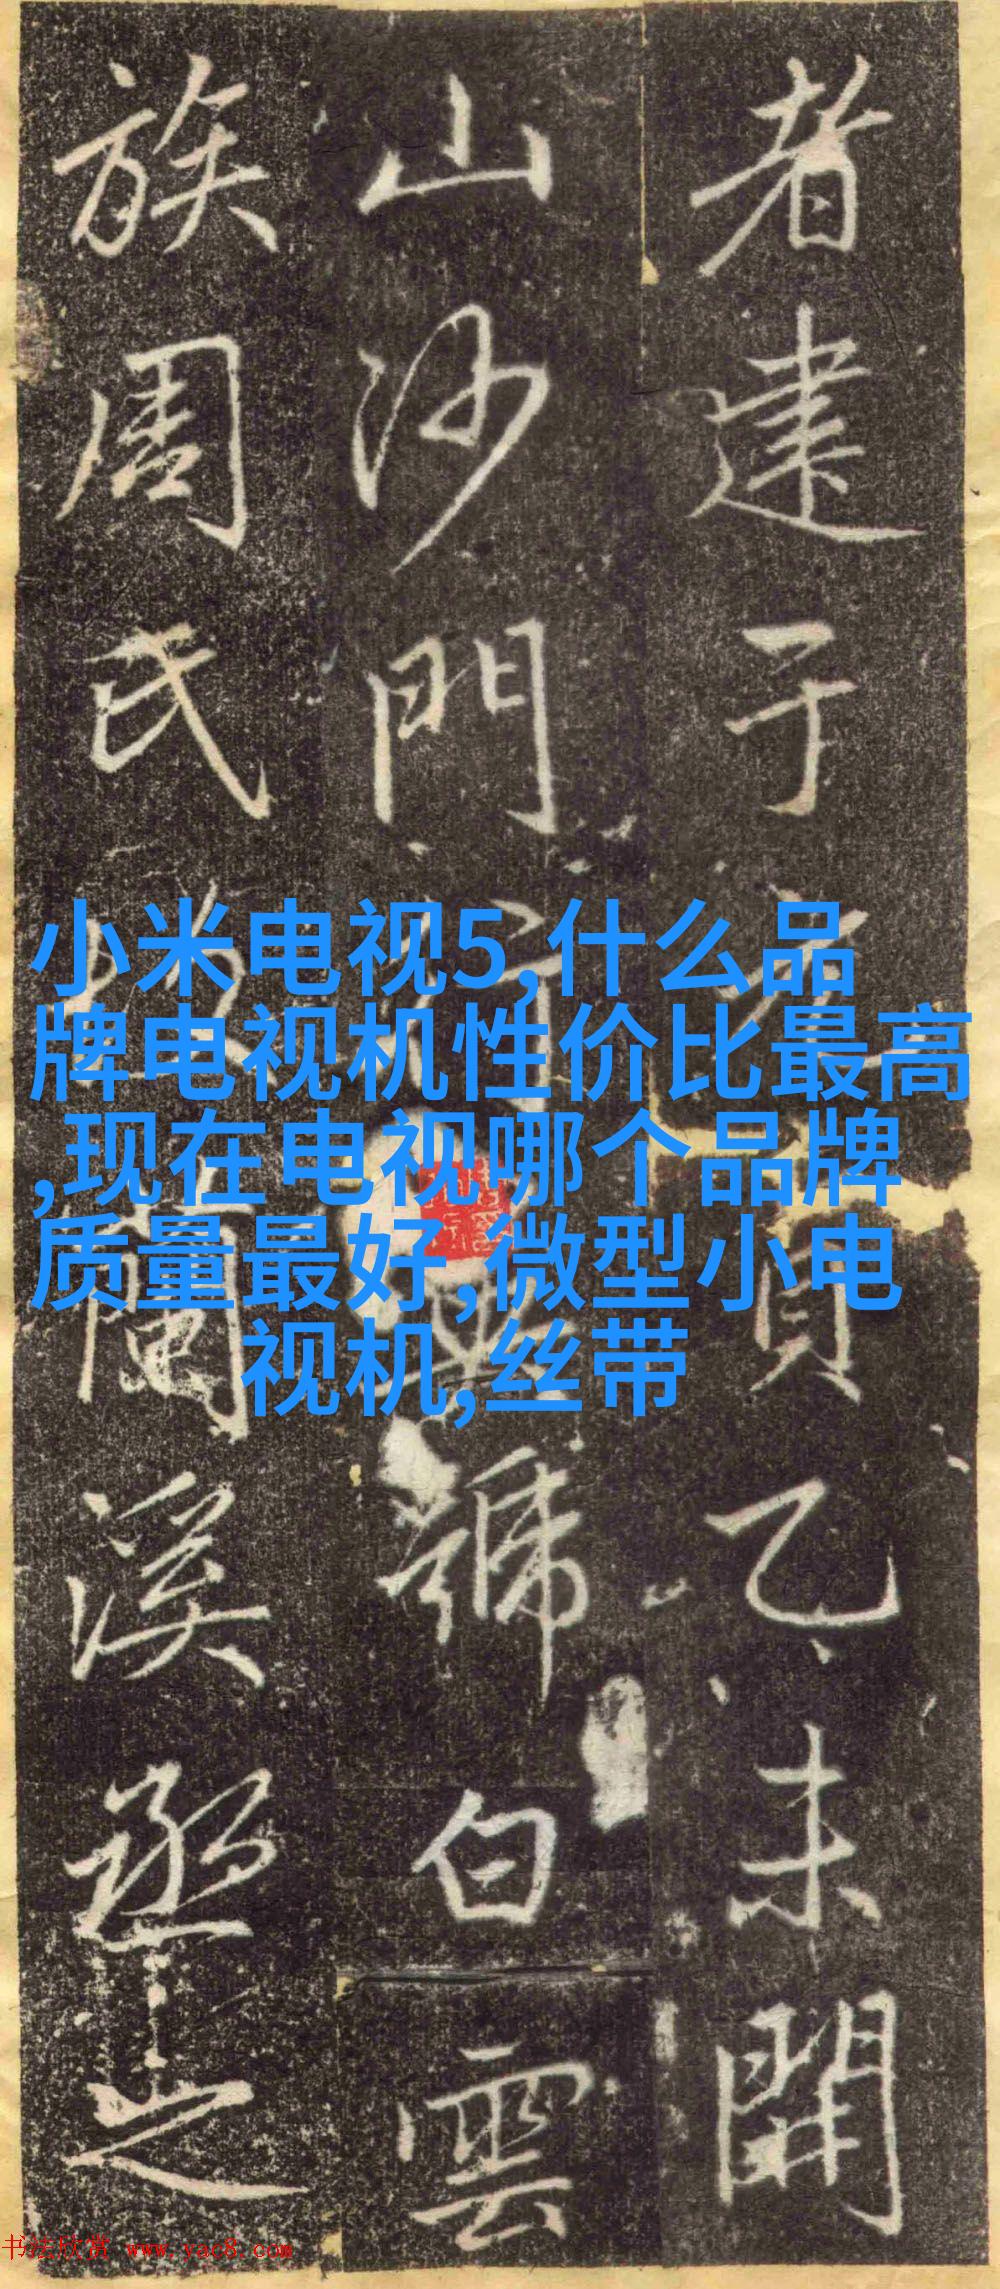 者建于元貞乙未開
山沙門行號白雲
族周氏蘭溪丞之
小米电视5,什么品
牌电视机性价比最高
,现在电视哪个品牌
质量最好,微型小电
视机,丝带
书法欣赏 www.yac8.com